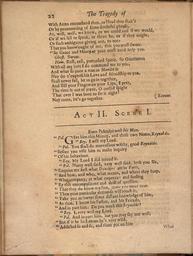 22 The Tragedy of
With Arms encumbred thus, or Head thus shak't
Or by pronouncing of some doubtful phrase,
As, well, well, we know, or we could and if we would,
Or if we list to speak, or there be, or if they might,
Or such ambiguous giving out, to note
That you know ought of me, this you must swear
So Grace and Mercy at your most need help you.
Ghost. Swear.
Ham. Rest, rest, perturbed Spirit. So Gentlemen
With all my love I do commend me to you,
And what so poor a man as Hamlet is
May do t'express his Love and friendship to you,
Shall never fail, let us go in together,
And still your Fingers on your Lips, I pray,
The time is out of joint, O cursed spight
That ever I was born to set it right!
Nay come, let's go together. Exeunt.
ACT II. SCENE I.
Enter Polonius with his Man.
Pol. Give him this Money, and these two Notes, Reynaldo.
Rey. I will my Lord.
Pol. You shall do marvellous wisely, good Reynaldo,
Before you visit him to make inquiry
Of his behaviour.
Rey. My Lord I did intend it.
Pol. Marry well said, very well said, look you Sir,
Enquire me first what Danskers are in Paris,
And how, and who, what means, and where they keep,
What company, at what expence: and finding
By this encompassment and drift of question
That they do know my Son,
Than your particular demands will touch it,
Take you as 'twere some distant knowledge of him,
As thus, I know his Father, and his Friends,
And in part him: Do you mark this Reynaldo?
Rey. I, very well my Lord.
Pol. And in part him, but you may say not well,
But if't be he I mean, he's very wild,
Addicted so and so, and there put on
What